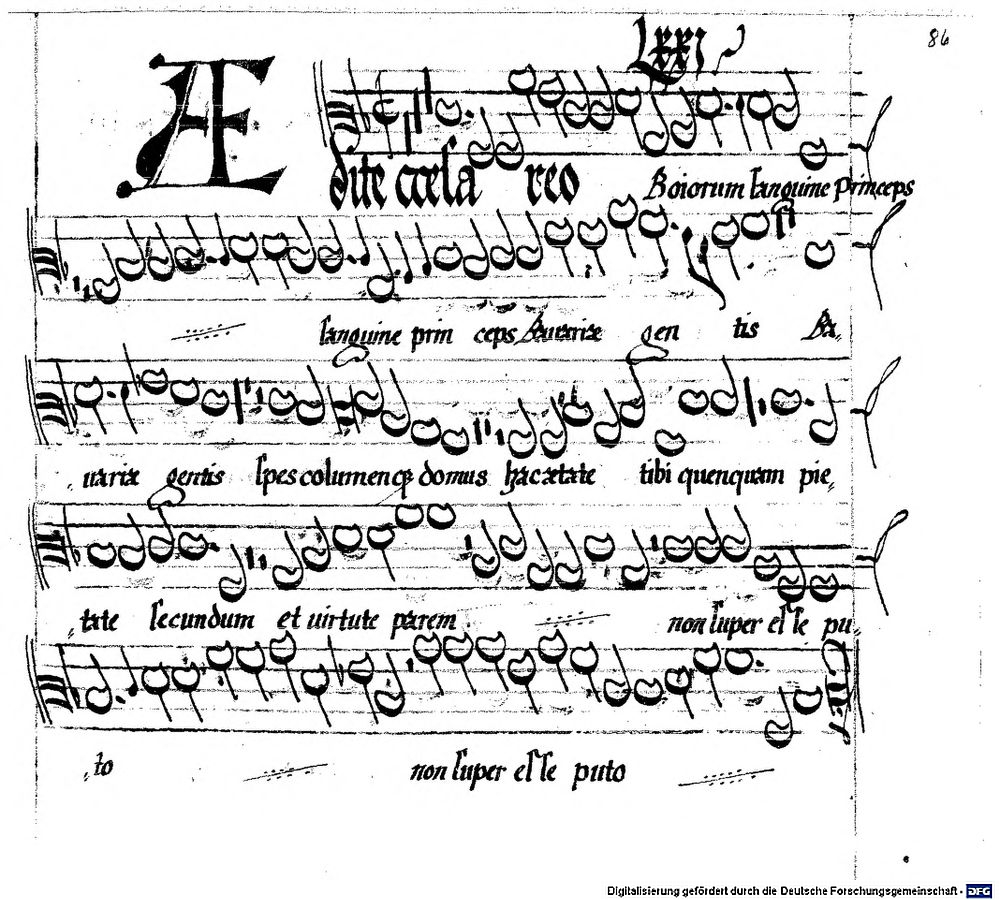 LXXI
86
Ædite cæsareo Boiorum sanguine princeps
sanguine prin ceps Bauariæ gen tis Ba„
„uariæ gentis spes columenq; domus hac ætate tibi quenquam pie„
„tate secundum et uirtute parem non super esse pu„
„to non super esse puto
Digitalisierung gefördert durch die Deutsche Forschungsgemeinschaft - DFG